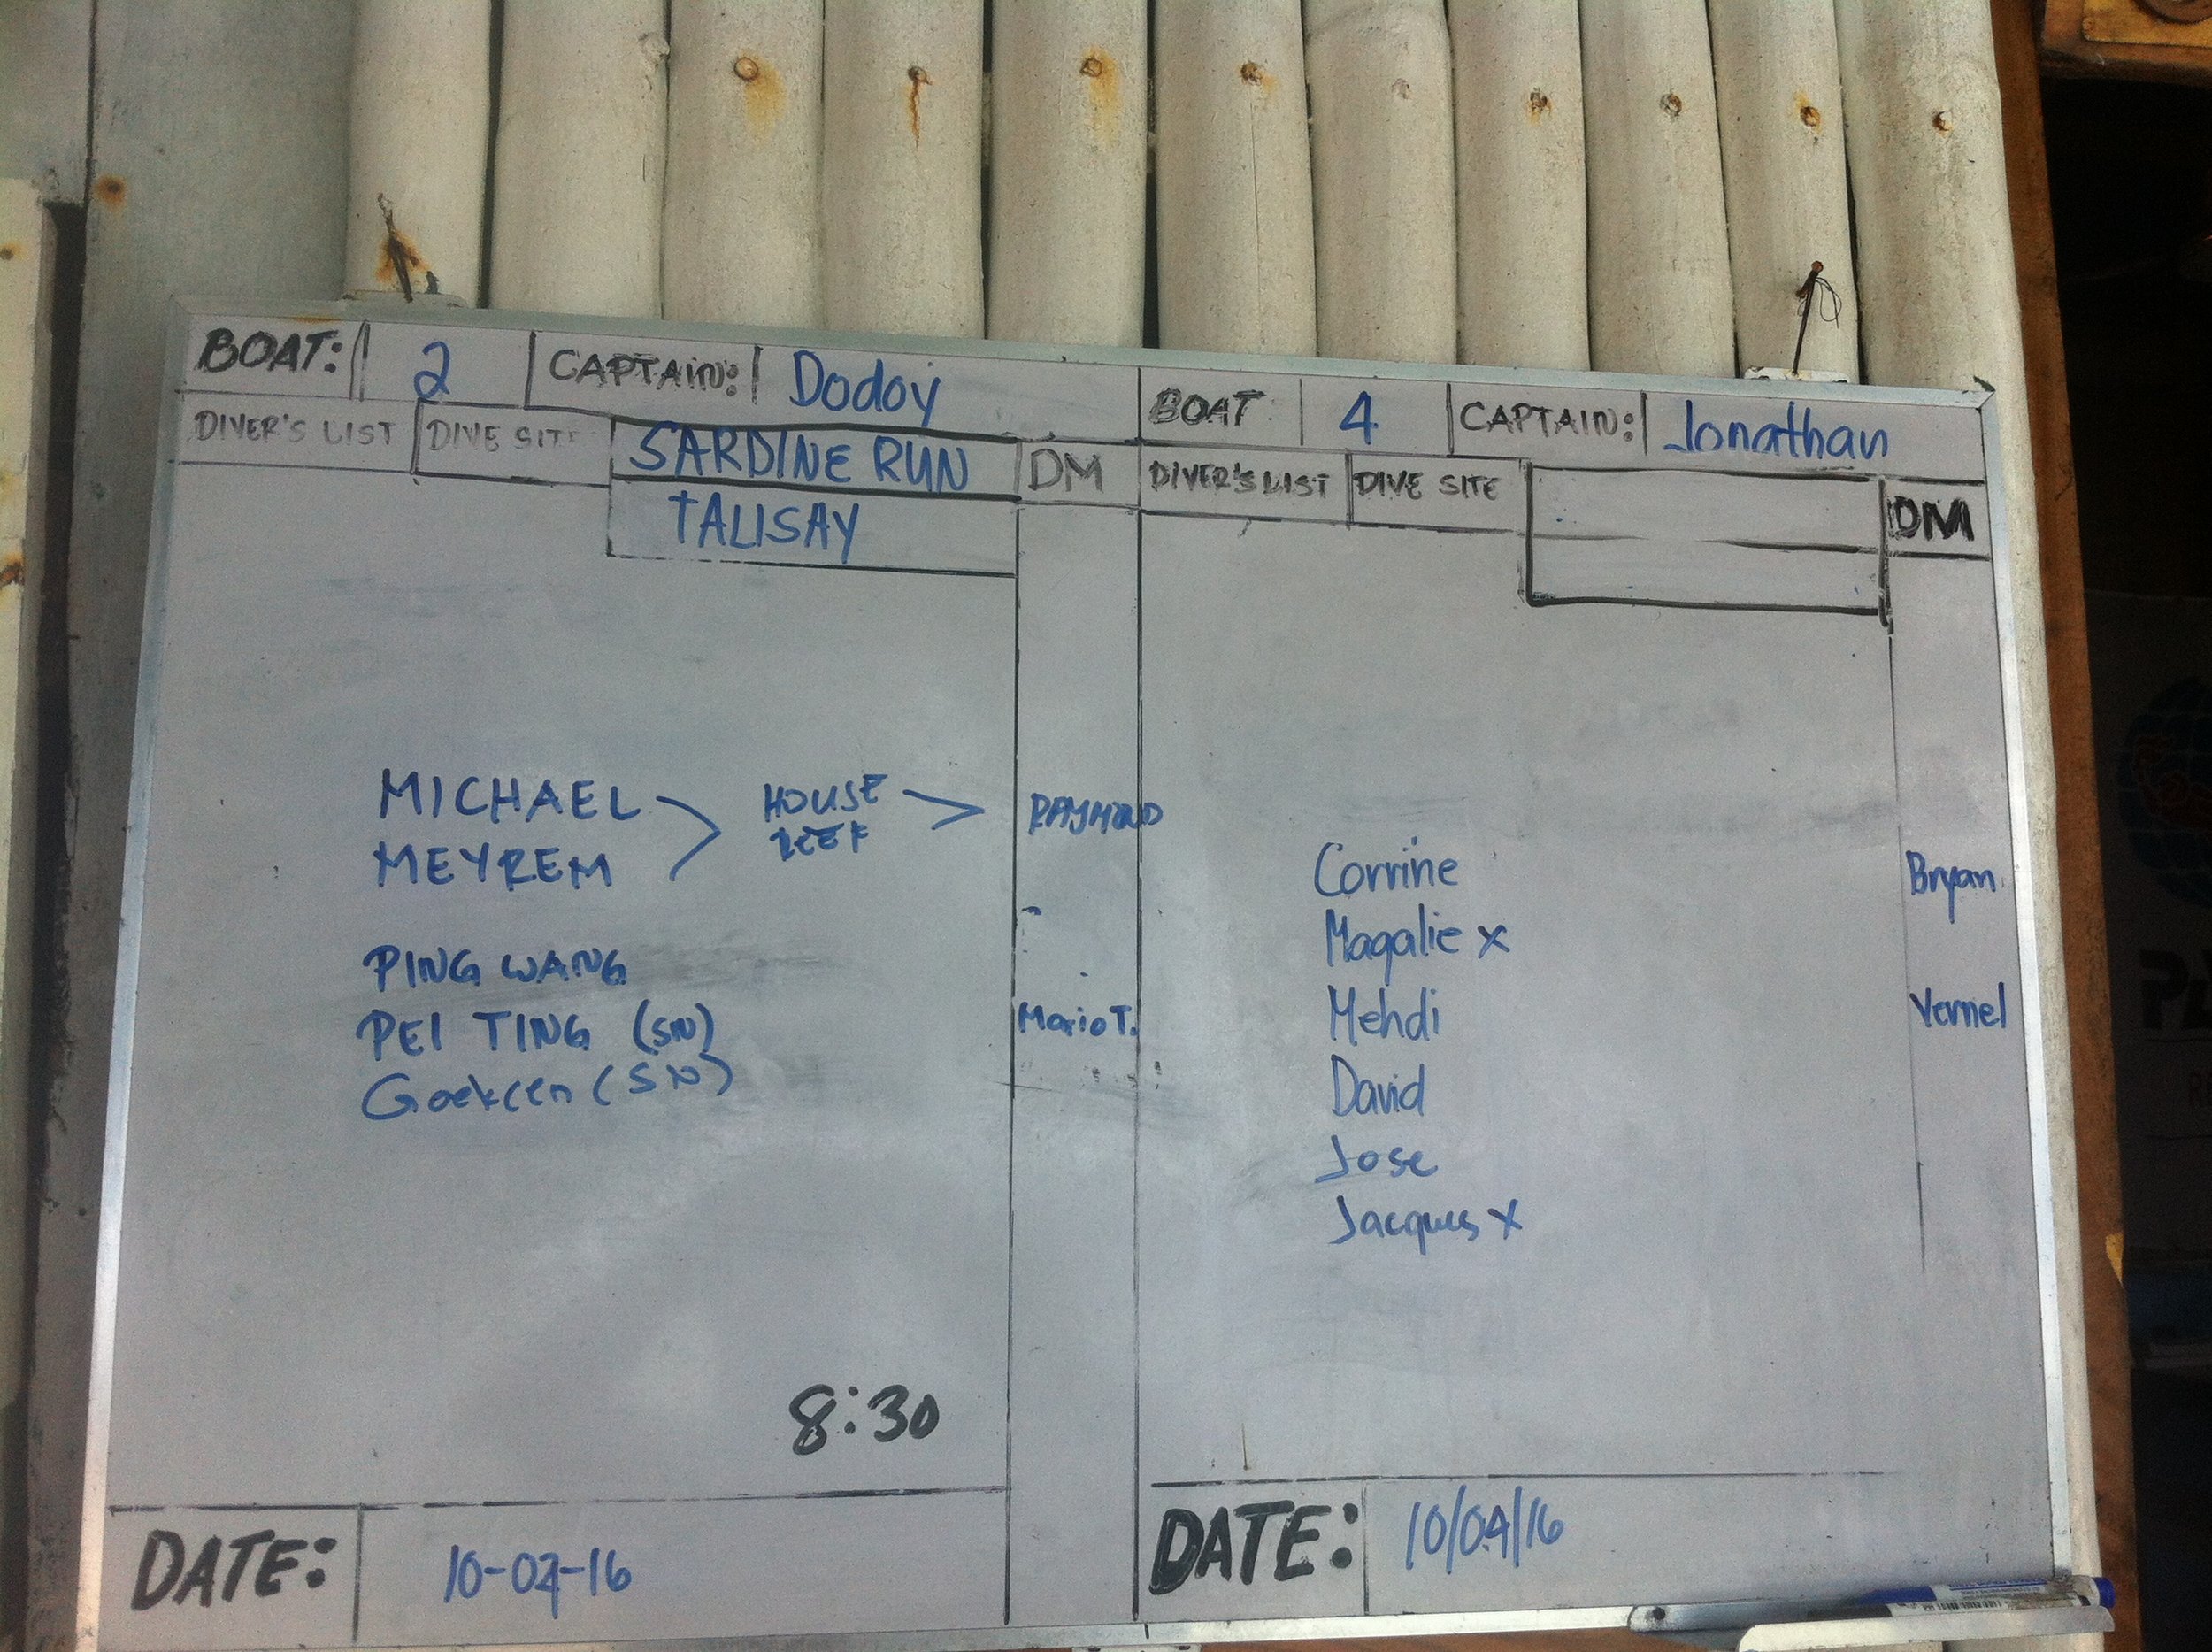 BOAT: 2 CAPTAIN: Dodoy
DIVER'S LIST DIVE SITE SARDINE RUN DM
TALISAY
MICHAEL HOUSE REEF RAYMOND
MEYREM
PING WANG
PEI TING (SN) Mario T.
Goekcen (SN)
8:30
DATE: 10-04-16
BOAT 4 CAPTAIN: Jonathan
DIVER'S LIST DIVE SITE DM
Corrine Bryan
Magalie x
Mehdi Vernel
David
Jose
Jacques x
DATE: 10/04/16